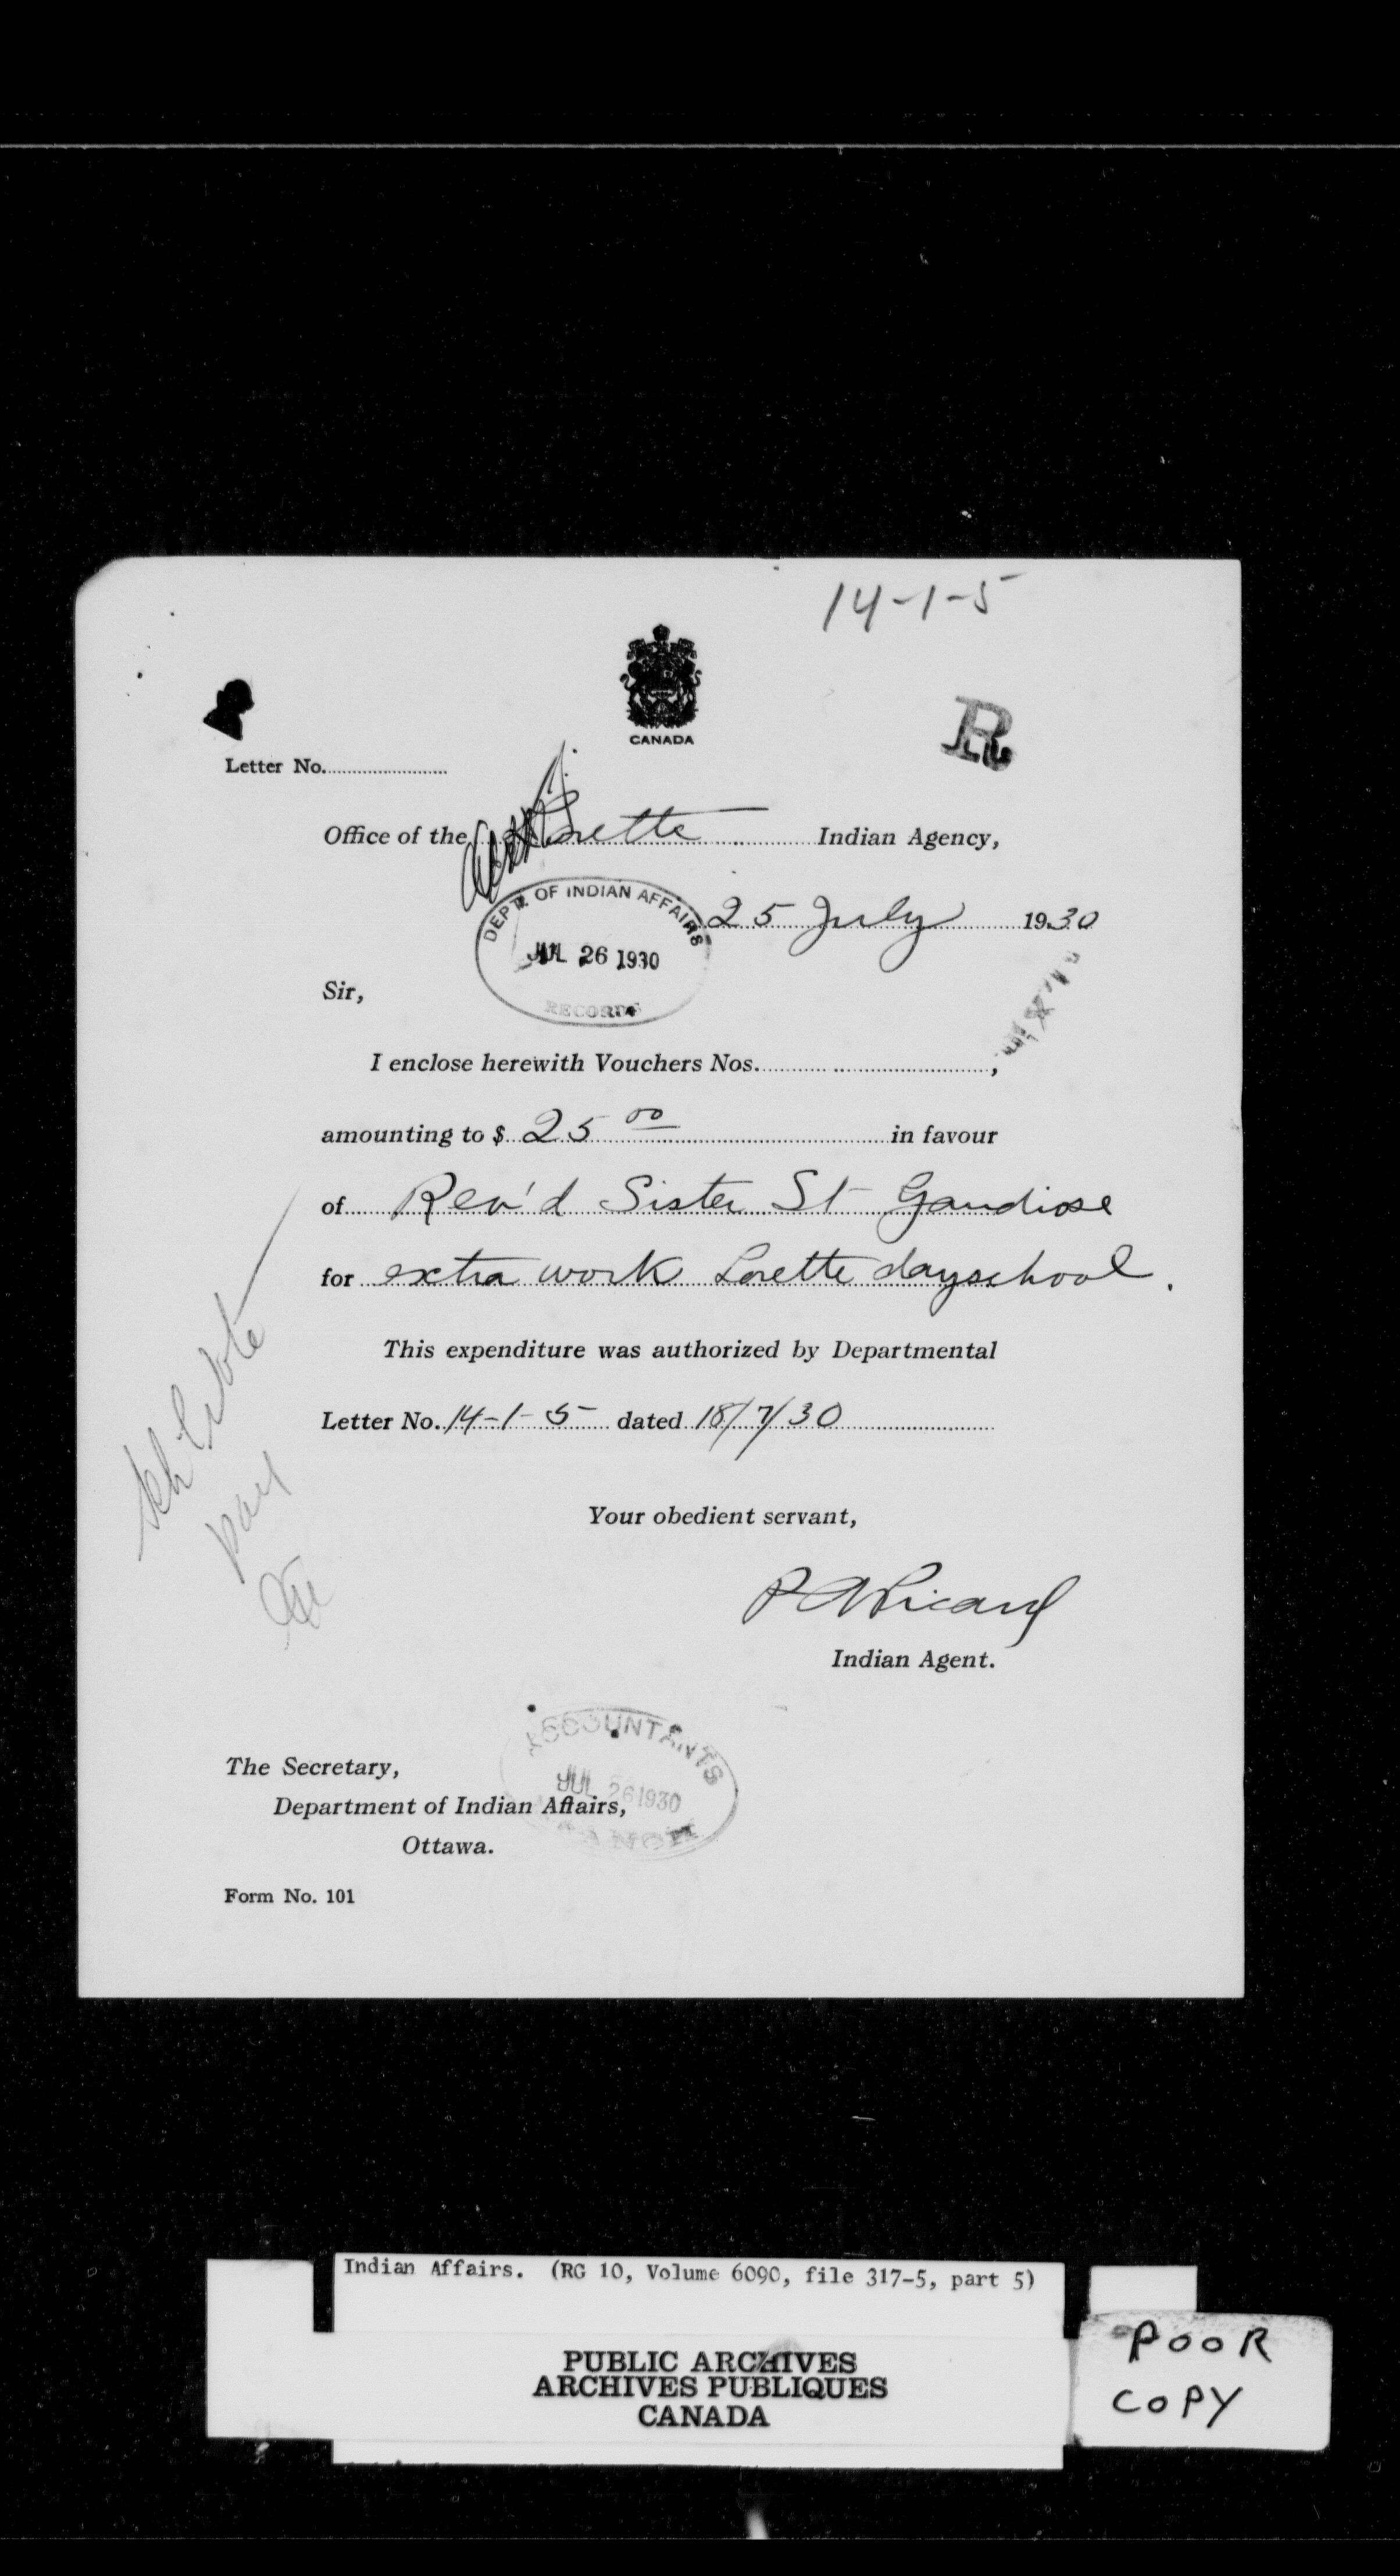 14-1-5
CANADA
R
Letter No.
Office of the Lorette Indian Agency,
25 July 1930
DEPT. OF INDIAN AFFAIRS
JUL 26 1930
RECORDS
Sir,
I enclose herewith Vouchers Nos. ,
amounting to $ 25 00 in favour
of Rev'd Sister St Gaudiose
for extra work Lorette dayschool.
This expenditure was authorized by Departmental
Letter No. 14-1-5 dated 18/7/30
Your obedient servant,
P A Picard
Indian Agent.
pay
ACCOUNTANTS
JUL 26 1930
BRANCH
The Secretary,
Department of Indian Affairs,
Ottawa.
Form No. 101
Indian Affairs. (RG 10, Volume 6090, file 317-5, part 5)
PUBLIC ARCHIVES
ARCHIVES PUBLIQUES
CANADA
POOR
COPY